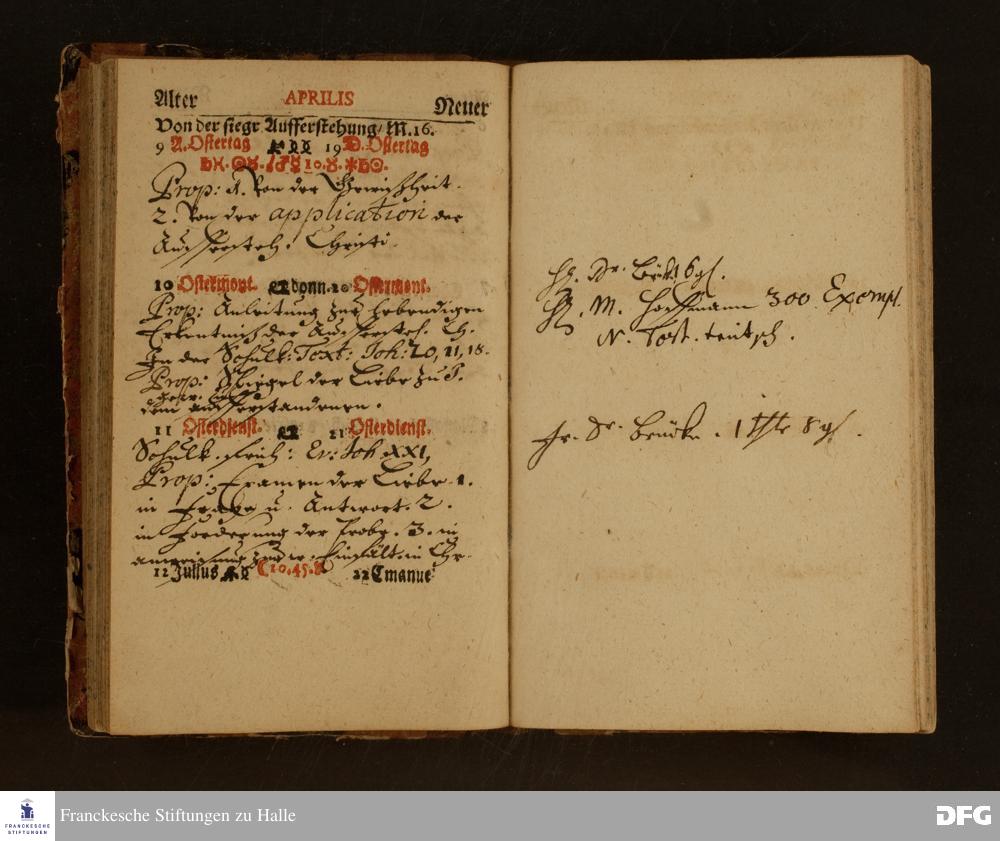 Alter APRILIS Neuer
Von der siegr Aufferstehung/ M.16.
9 A. Ostertag 19 D. Ostertag
10. 
Prop: 1. Von der Gewißheit.
2. Von der application der
Aufersteh. Christi.
10 Ostermont. donn. 20 Ostermont.
Prop: Anleitung zur lebendigen
Erkentniß der Aufersteh. Ch.
In der Schulk: Text: Joh: 20, 11, 18.
Prop: Spiegel der Liebe zu J.
dem auferstandenen.
11 Osterdienst. 21 Osterdienst.
Schulk. früh: Ev: Joh XXI,
Prop: Examen der Liebe. 1.
in Frage u. Antwort. 2.
in forderung der Probe. 3. in
12 Julius 10.45. 22 Emanue
H. Dr. 6 gl.
H. M. Hoffmann 300 Exempl.
N. Test. teutsch.
Fr. Dr. 1 thlr 8 gl.
Franckesche Stiftungen zu Halle
FRANCKESCHE
STIFTUNGEN
DFG